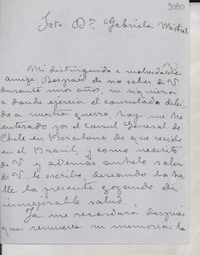 Srta. Dª Gabriela Mistral
Mi distinguida e inolvidable
amiga: Después de no saber de V.
durante unos años, ni siquiera
a donde ejercia el consulado debi-
do a nuestra guerra, hoy me he
enterado por el Consul General de
Chile en Barcelona de que reside
en el Brasil, y como necesito
de V. y además anhelo saber
de V. le escribo, deseando la ha-
lle la presente gozando de
inmejorable salud.
Ya me recordará despues
que remueva su memoria, la